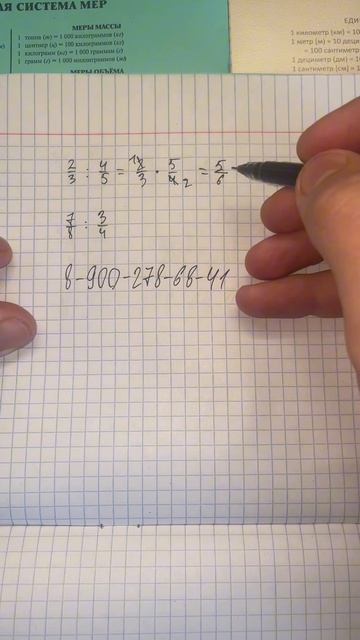 АЯ СИСТЕМА МЕР
МЕРЫ МАССЫ
1 тонна (т) = 1 000 килограммов (кг)
1 центнер (ц) = 100 килограммов (кг)
1 килограмм (кг) = 1 000 граммов (г)
1 грамм (г) = 1 000 миллиграммов (мг)
МЕРЫ ОБЪЁМА
ЕДИ
1 километр (км) = 10
1 метр (м) = 10 деци
= 100 сантиметр
1 дециметр (дм) = 10
1 сантиметр (см) = 1
2/3 : 4/5 = 1 2/3 · 5/4 2 = 5/6
7/8 : 3/4
8-900-278-68-41